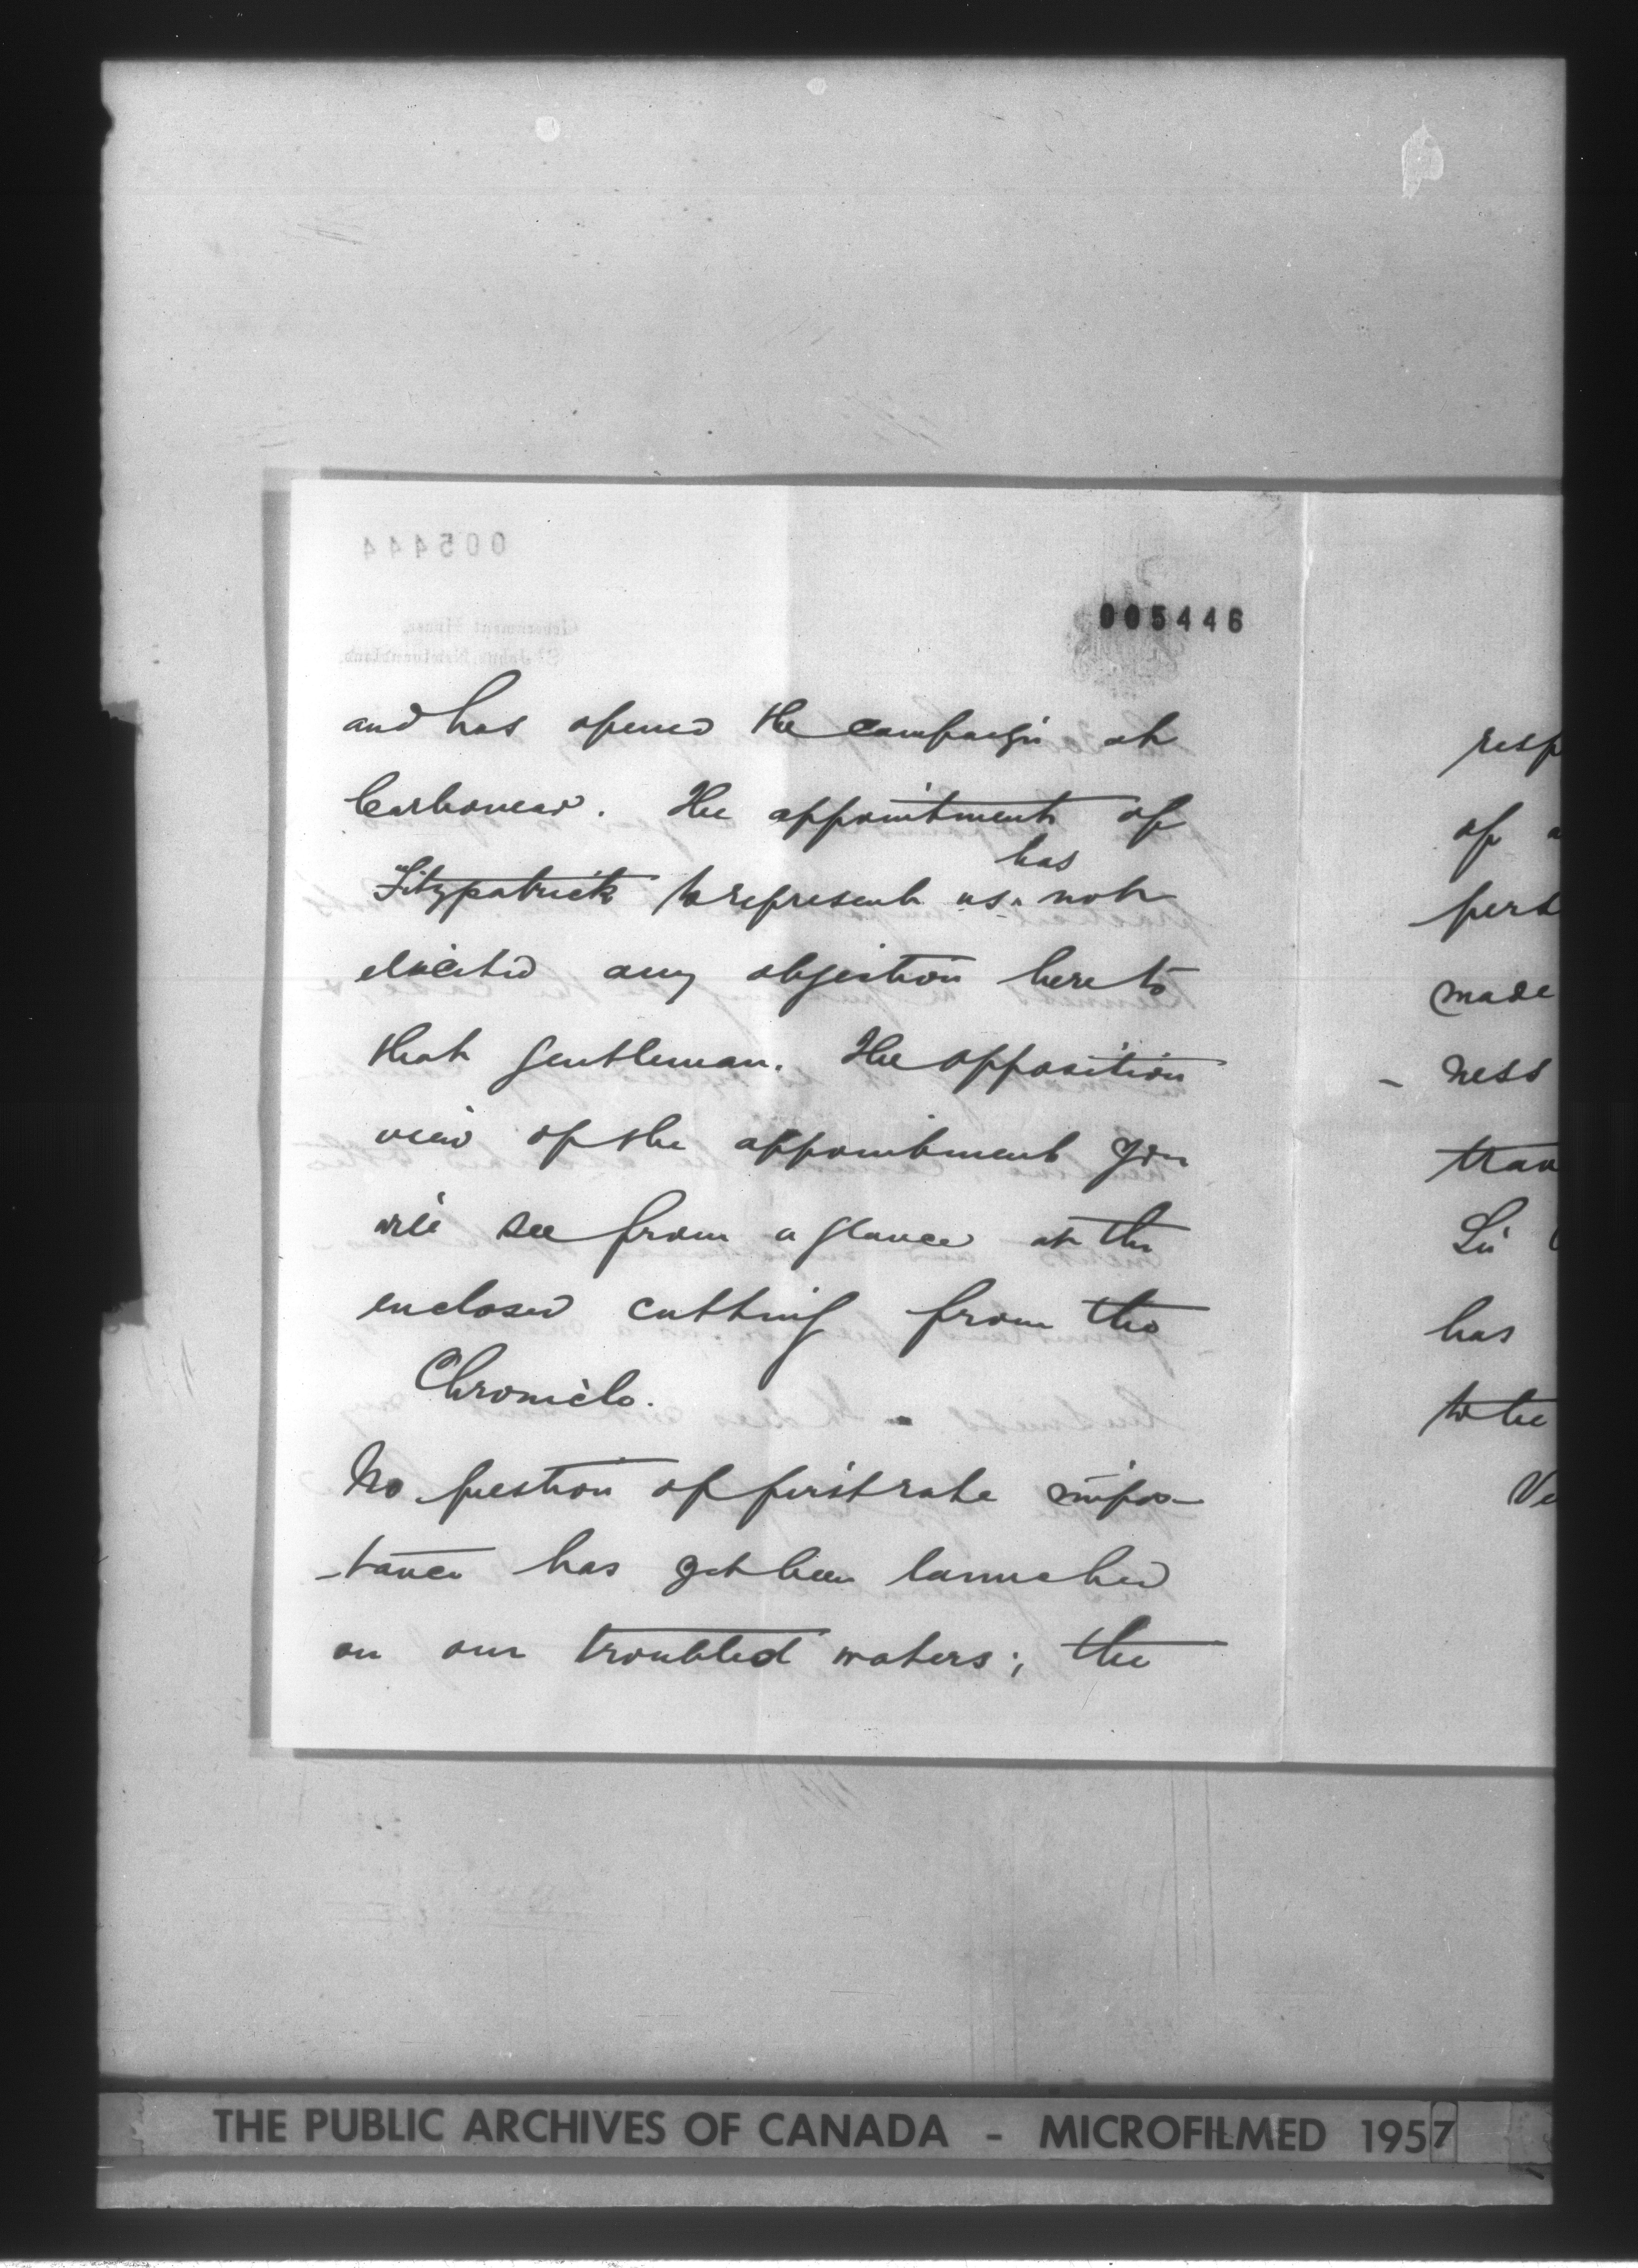 005444
005446
Government House,
St John's, Newfoundland.
and has opened the campaign at
Carbonear. The appointment of
has
Fitzpatrick to represent us ^ not
elicited any objection here to
that gentleman. The opposition
view of the appointment you
will see from a glance at the
enclosed cutting from the
Chronicle.
No question of first rate impor
-tance has yet been launched
on our troubled waters; the
resp
of a
pert
made
- ness
tran
Sir
has
to the
Ve
THE PUBLIC ARCHIVES OF CANADA - MICROFILMED 1957